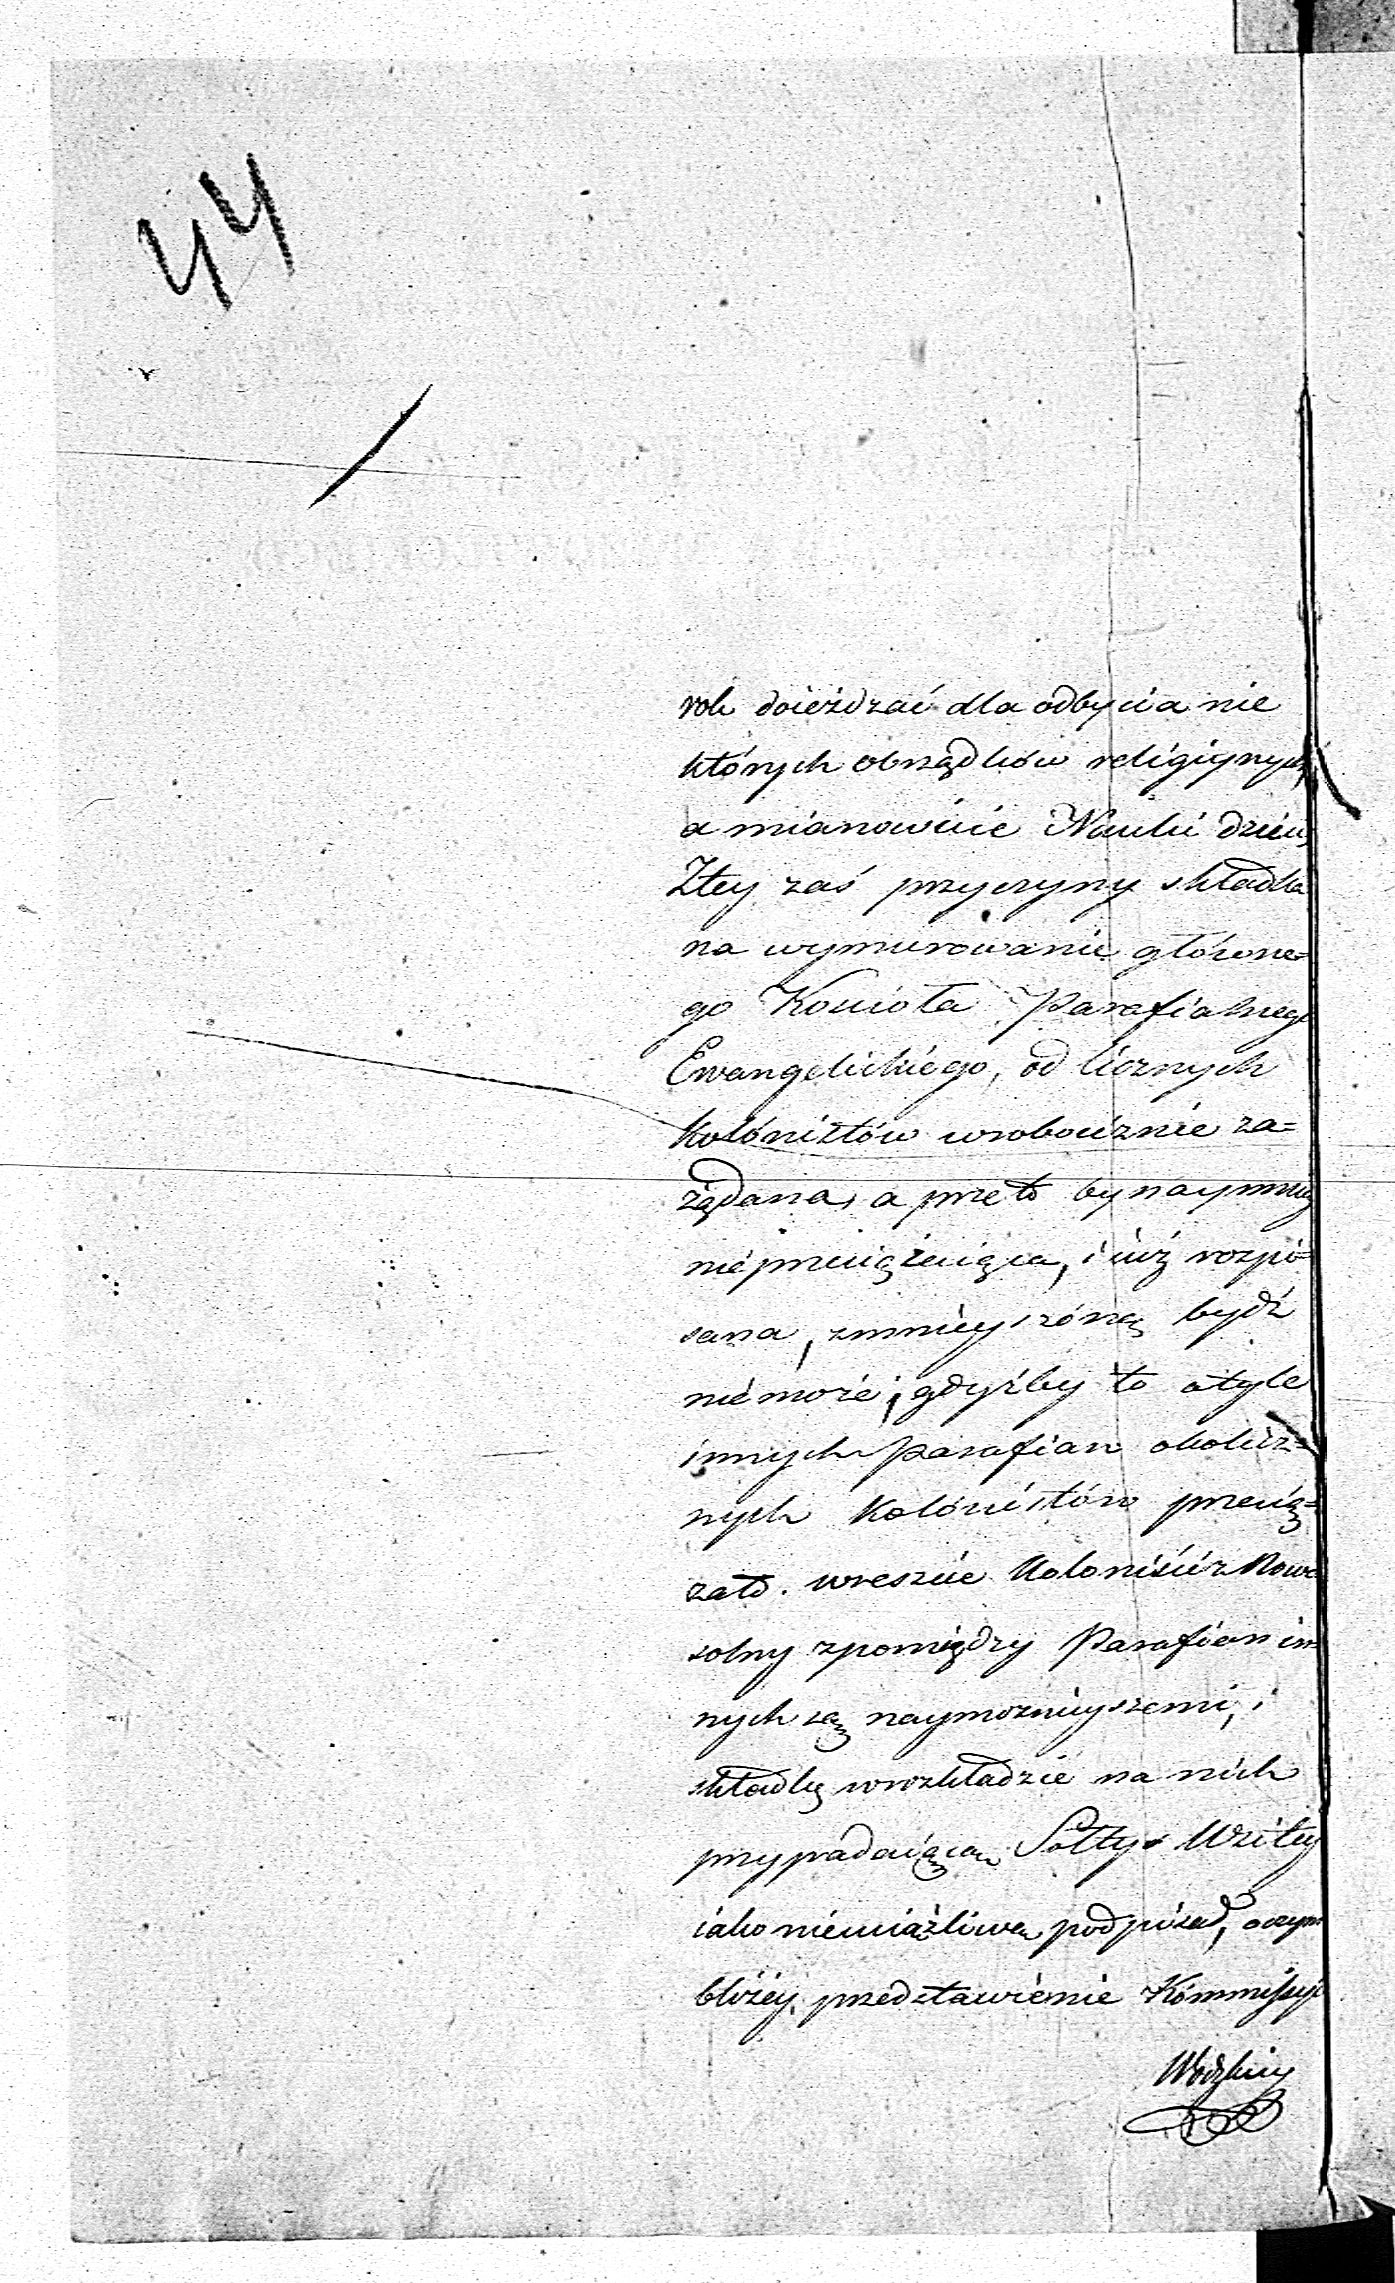 44
rok doieżdzać dla odbycia nie
których obrządków religiynych,
a mianowicie Nauki dzieci,
Ztey zaś przyczyny składka
na wymurowanie główne=
go Kościoła Parafialnego
Ewangelickiego, od licznych
kolónistów wrobociznie za=
żądana, a przeto bynaymniey
nieprzeciążaiąca, i iuż rozpi=
sana, zmnieyszóną bydź
niemoże; gdyżby to otyle
innych Parafian okolicz=
nych Kolónistów przecią=
żało. wreszcie Koloniści z Nowo
solny zpomiędzy Parafian in
nych są naymożnieyszemi, i
składkę wrozkładzie na nich
przypadaiącą Sołtys Wzitey
iako nieuciążliwą podpisał, oczym
bliżey przedstawienie Kómmissyi